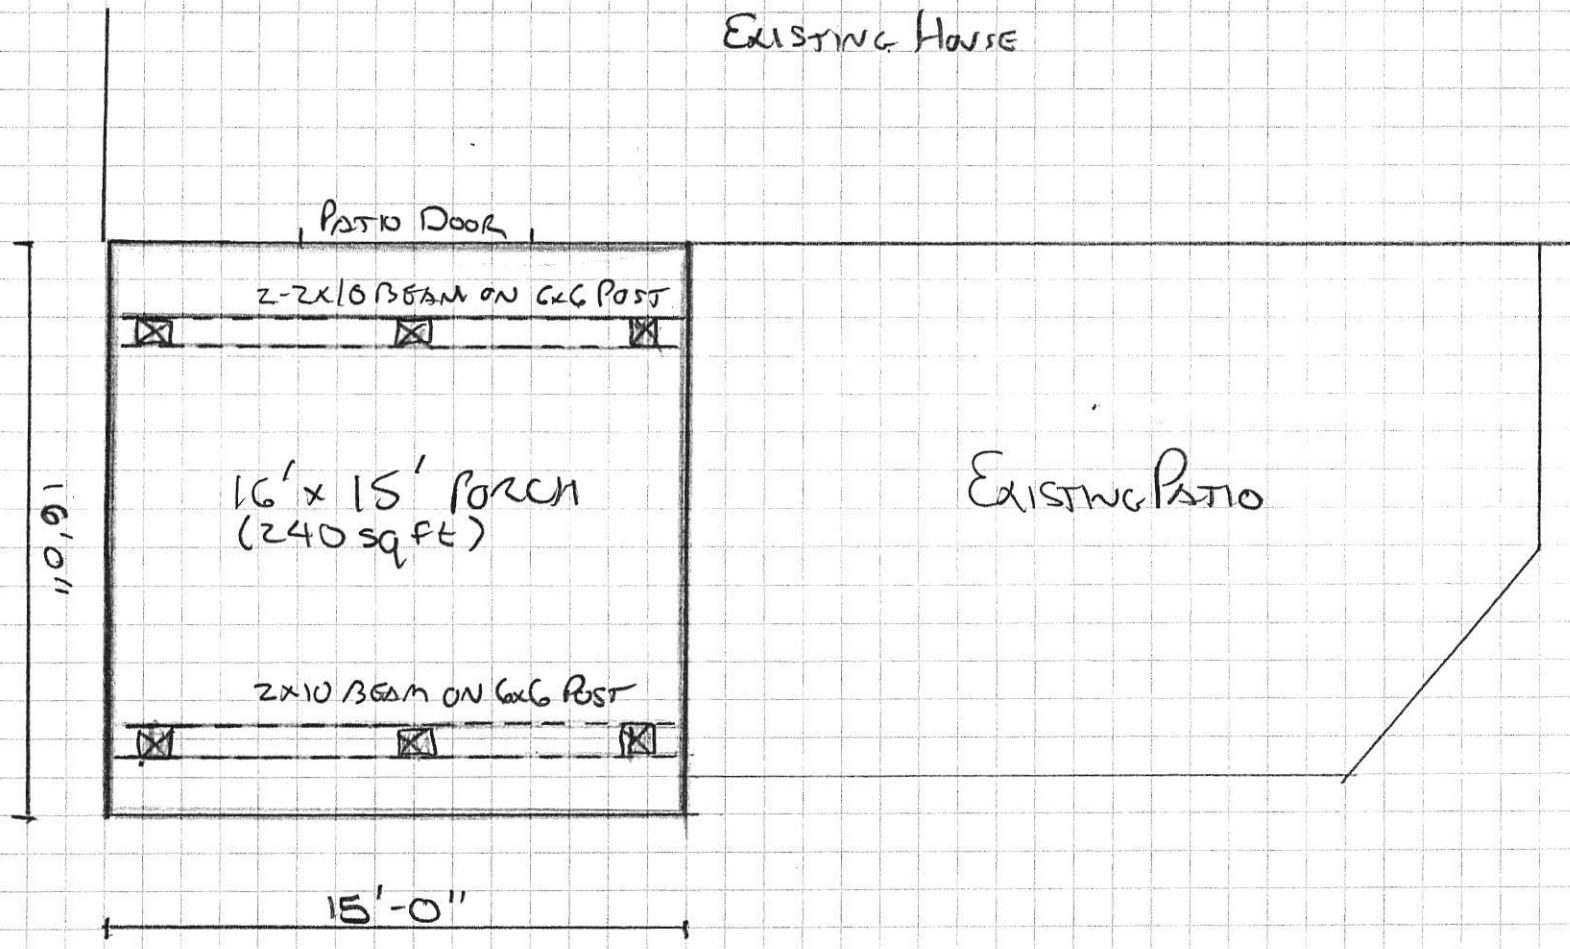 EXISTING HOUSE
PATIO DOOR
2-2x10 BEAM ON 6x6 POST
16' x 15' PORCH
(240 sq ft)
EXISTING PATIO
16'0"
2x10 BEAM ON 6x6 POST
15'-0"